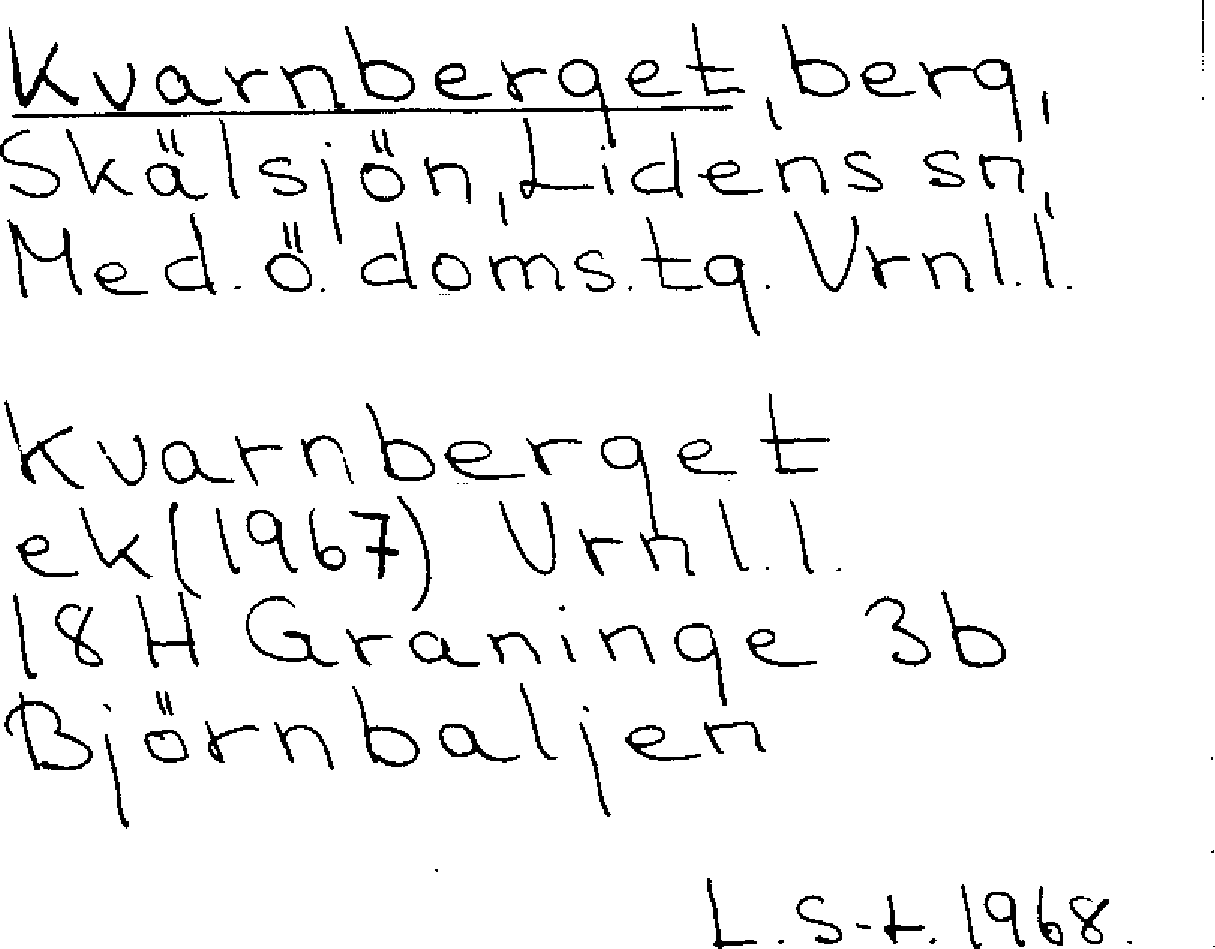 Kvarnberget, berg,
Skälsjön, Lidens sn,
Med. ö. doms. tg. Vrnl. l.
Kvarnberget
ek (1967) Vrnl. l.
18H Graninge 3b
Björnbaljen
L. S-t. 1968.